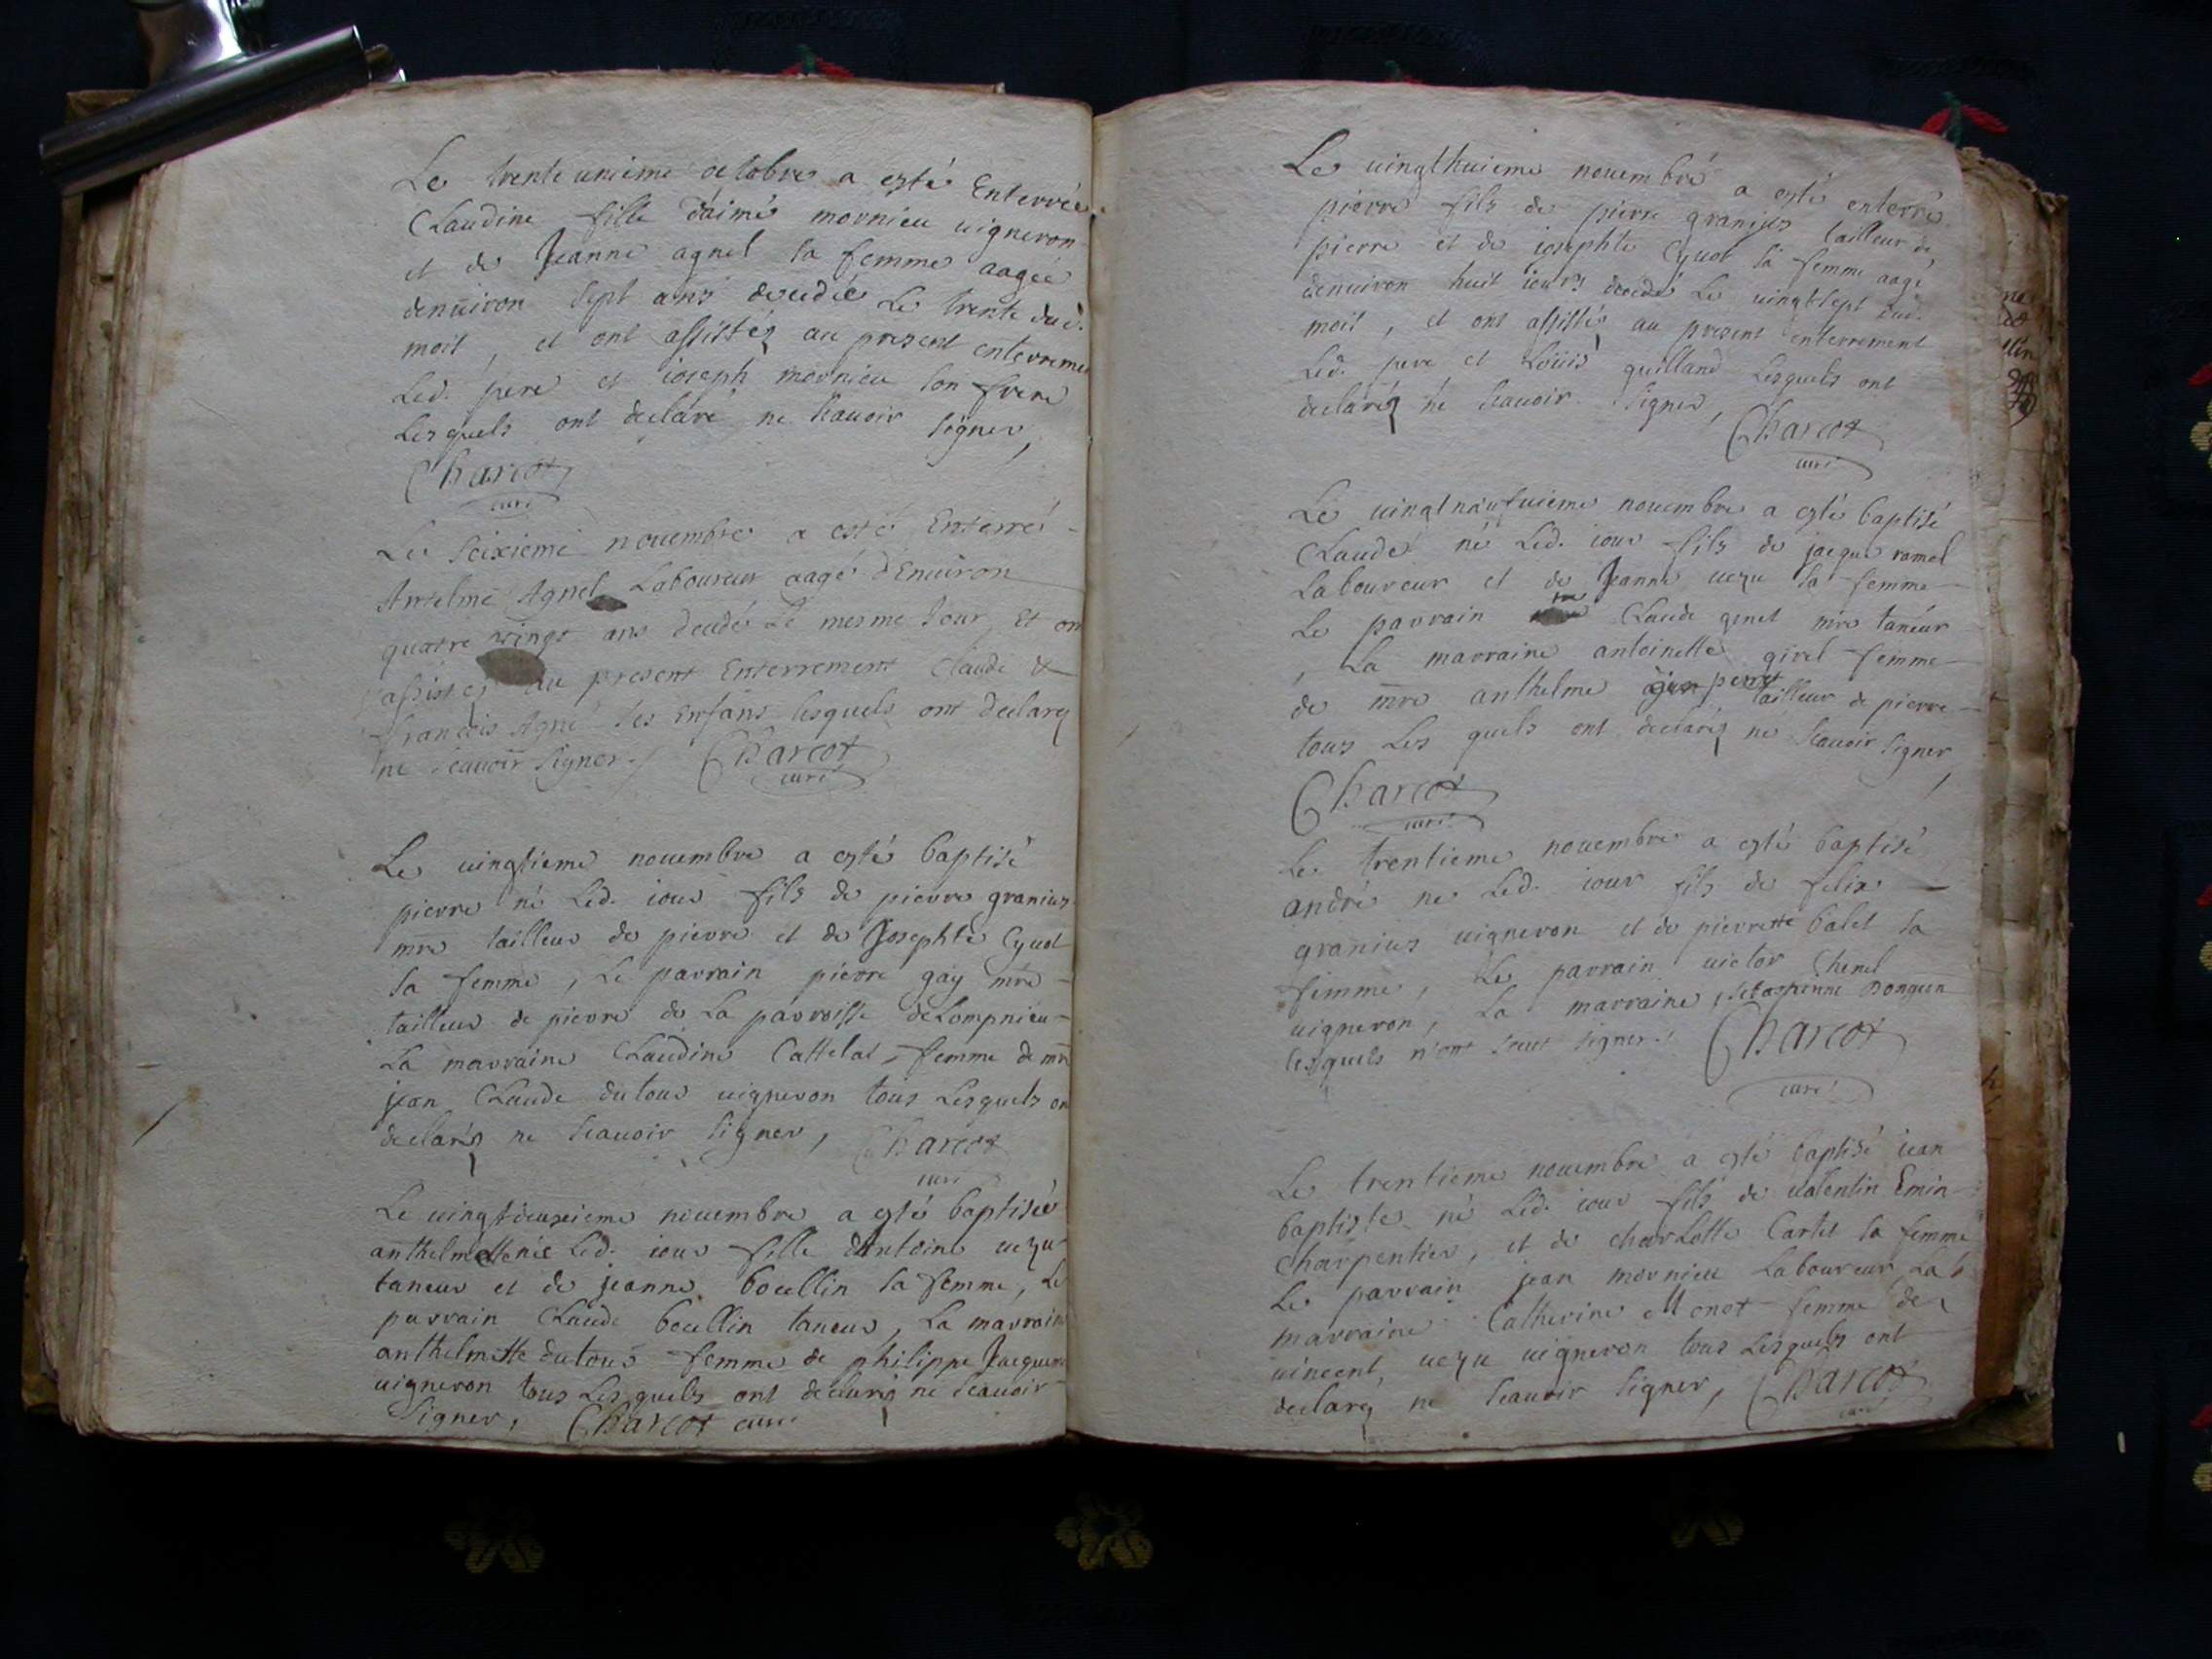 Le trente unieme octobre a esté Enterrée
Claudine fille d'aimé mornieu uigneron
et de Jeanne agnel sa femme aagée
denuiron sept ans decedée Le trente dud.
mois, et ont assistéz au present enterreme
Led. pere et ioseph mornieu son frere
Lesquels ont déclaré ne scauoir signer,
Charcot
curé
Le seixieme nouembre a esté Enterré
Antelme Agnel Laboureur aagé d'Enuiron
quatre vingt ans decedé Le mesme Jour, Et on
assistez au present Enterrement Claude &
francois Agne ses Enfans lesquels ont declarez
ne scauoir signer. / Charcot
curé
Le uingtieme nouembre a esté baptisé
pierre né Led. iour fils de pierre granius
mre tailleur de pierre et de Josephte Cyuot
sa femme, Le parrain pierre gay mre
tailleur de pierre de La parroisse deLompnieu
La marraine Claudine Cattelat, femme de mre
jean Claude dutour uigneron tous Lesquels on
declaréz ne scauoir signer, Charcot
curé
Le uingtdeuxieme nouembre a esté baptisée
anthelmette née Led. iour fille dAntoine uezu
taneur et de jeanne boullin sa femme, Le
parrain Claude boullin taneur, La marraine
anthelmette dutour femme de philippe Jacquem
uigneron tous Lesquels ont declaréz ne scauoir
signer, Charcot curé
Le uingthuieme nouembre a esté enterré
pierre fils de pierre granius tailleur de
pierre et de iosephte Cyuot sa femme aagé
denuiron huit iours decedé Le uingtsept dud.
mois, et ont assistéz au present enterrement
Led. pere et Loüis guilland Lesquels ont
declaréz ne scauoir signer,
Charcot
curé
Le uingtneufuieme nouembre a esté baptisé
Claude né Led. iour fils de jacque ramel
Laboureur et de Jeanne uezu sa femme
Le parrain mre Claude genet mre taneur
, La marraine antoinette girel femme
de mre anthelme perret tailleur de pierre
tous Les quels ont declaréz ne scauoir signer,
Charcot
curé
Le trentieme nouembre a esté baptisé
andré né Led. iour fils de felix
granius uigneron et de pierrette balet sa
femme, Le parrain uictor Chenel
uigneron, La marraine, Dongeon
lesquels n'ont sceut signer. / Charcot
curé
Le trentieme nouembre a esté baptisé iean
baptiste né Led. iour fils de ualentin Emin
Charpentier, et de charLotte Cartet sa femme
Le parrain jean mornieu Laboureur, La
marraine Catherine Monet femme de
uincent uezu uigneron tous Lesquels ont
declaréz ne scauoir signer, Charcot
curé